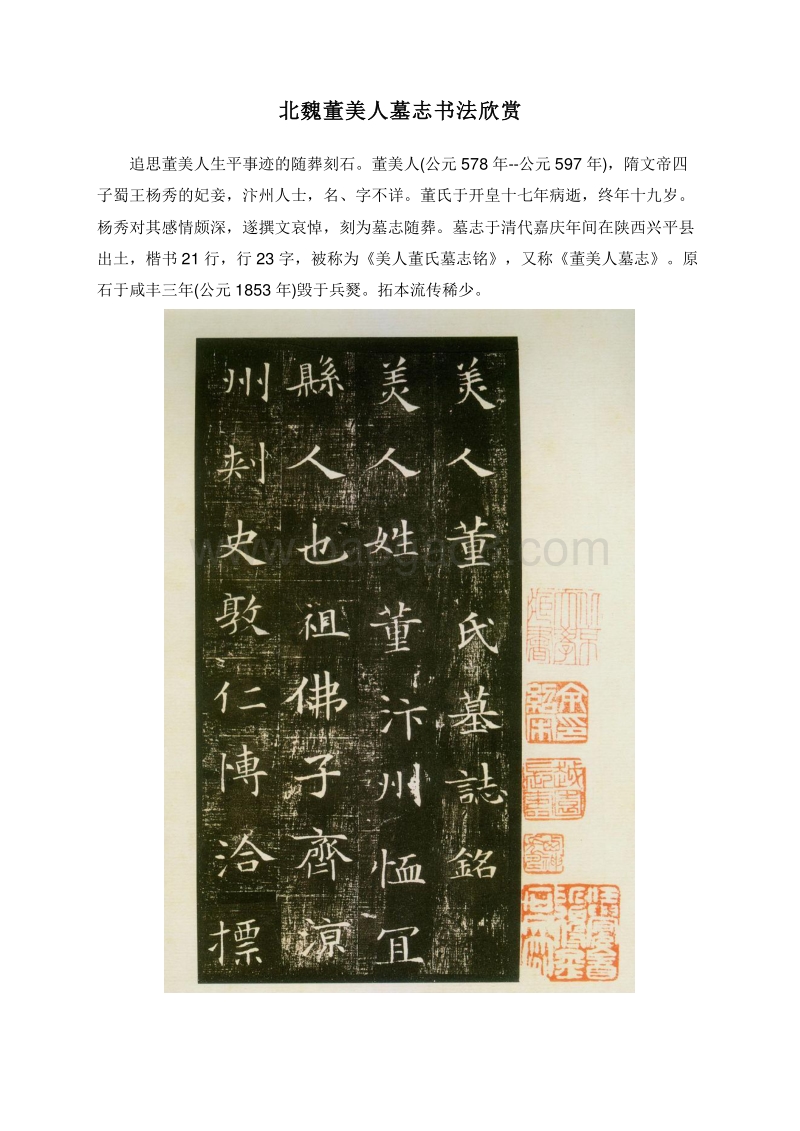 北魏董美人墓志书法欣赏
追思董美人生平事迹的随葬刻石。董美人(公元 578 年--公元 597 年)，隋文帝四
子蜀王杨秀的妃妾，汴州人士，名、字不详。董氏于开皇十七年病逝，终年十九岁。
杨秀对其感情颇深，遂撰文哀悼，刻为墓志随葬。墓志于清代嘉庆年间在陕西兴平县
出土，楷书 21 行，行 23 字，被称为《美人董氏墓志铭》，又称《董美人墓志》。原
石于咸丰三年(公元 1853 年)毁于兵燹。拓本流传稀少。
美人董氏墓誌銘
美人姓董汴州恤冝
縣人也祖佛子齊涼
州刺史敦仁愽洽標